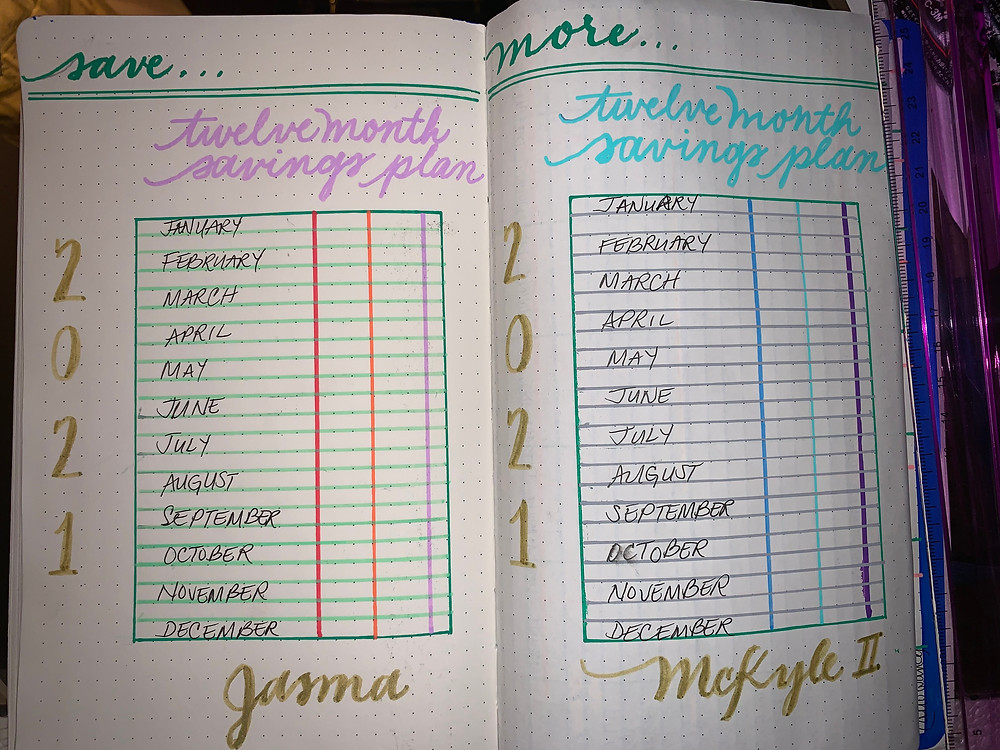 save...
twelve month
savings plan
2
0
2
1
JANUARY
FEBRUARY
MARCH
APRIL
MAY
JUNE
JULY
AUGUST
SEPTEMBER
OCTOBER
NOVEMBER
DECEMBER
Jasma
more...
twelve month
savings plan
2
0
2
1
JANUARY
FEBRUARY
MARCH
APRIL
MAY
JUNE
JULY
AUGUST
SEPTEMBER
OCTOBER
NOVEMBER
DECEMBER
McKyle II
24
23
22
21
20
19
18